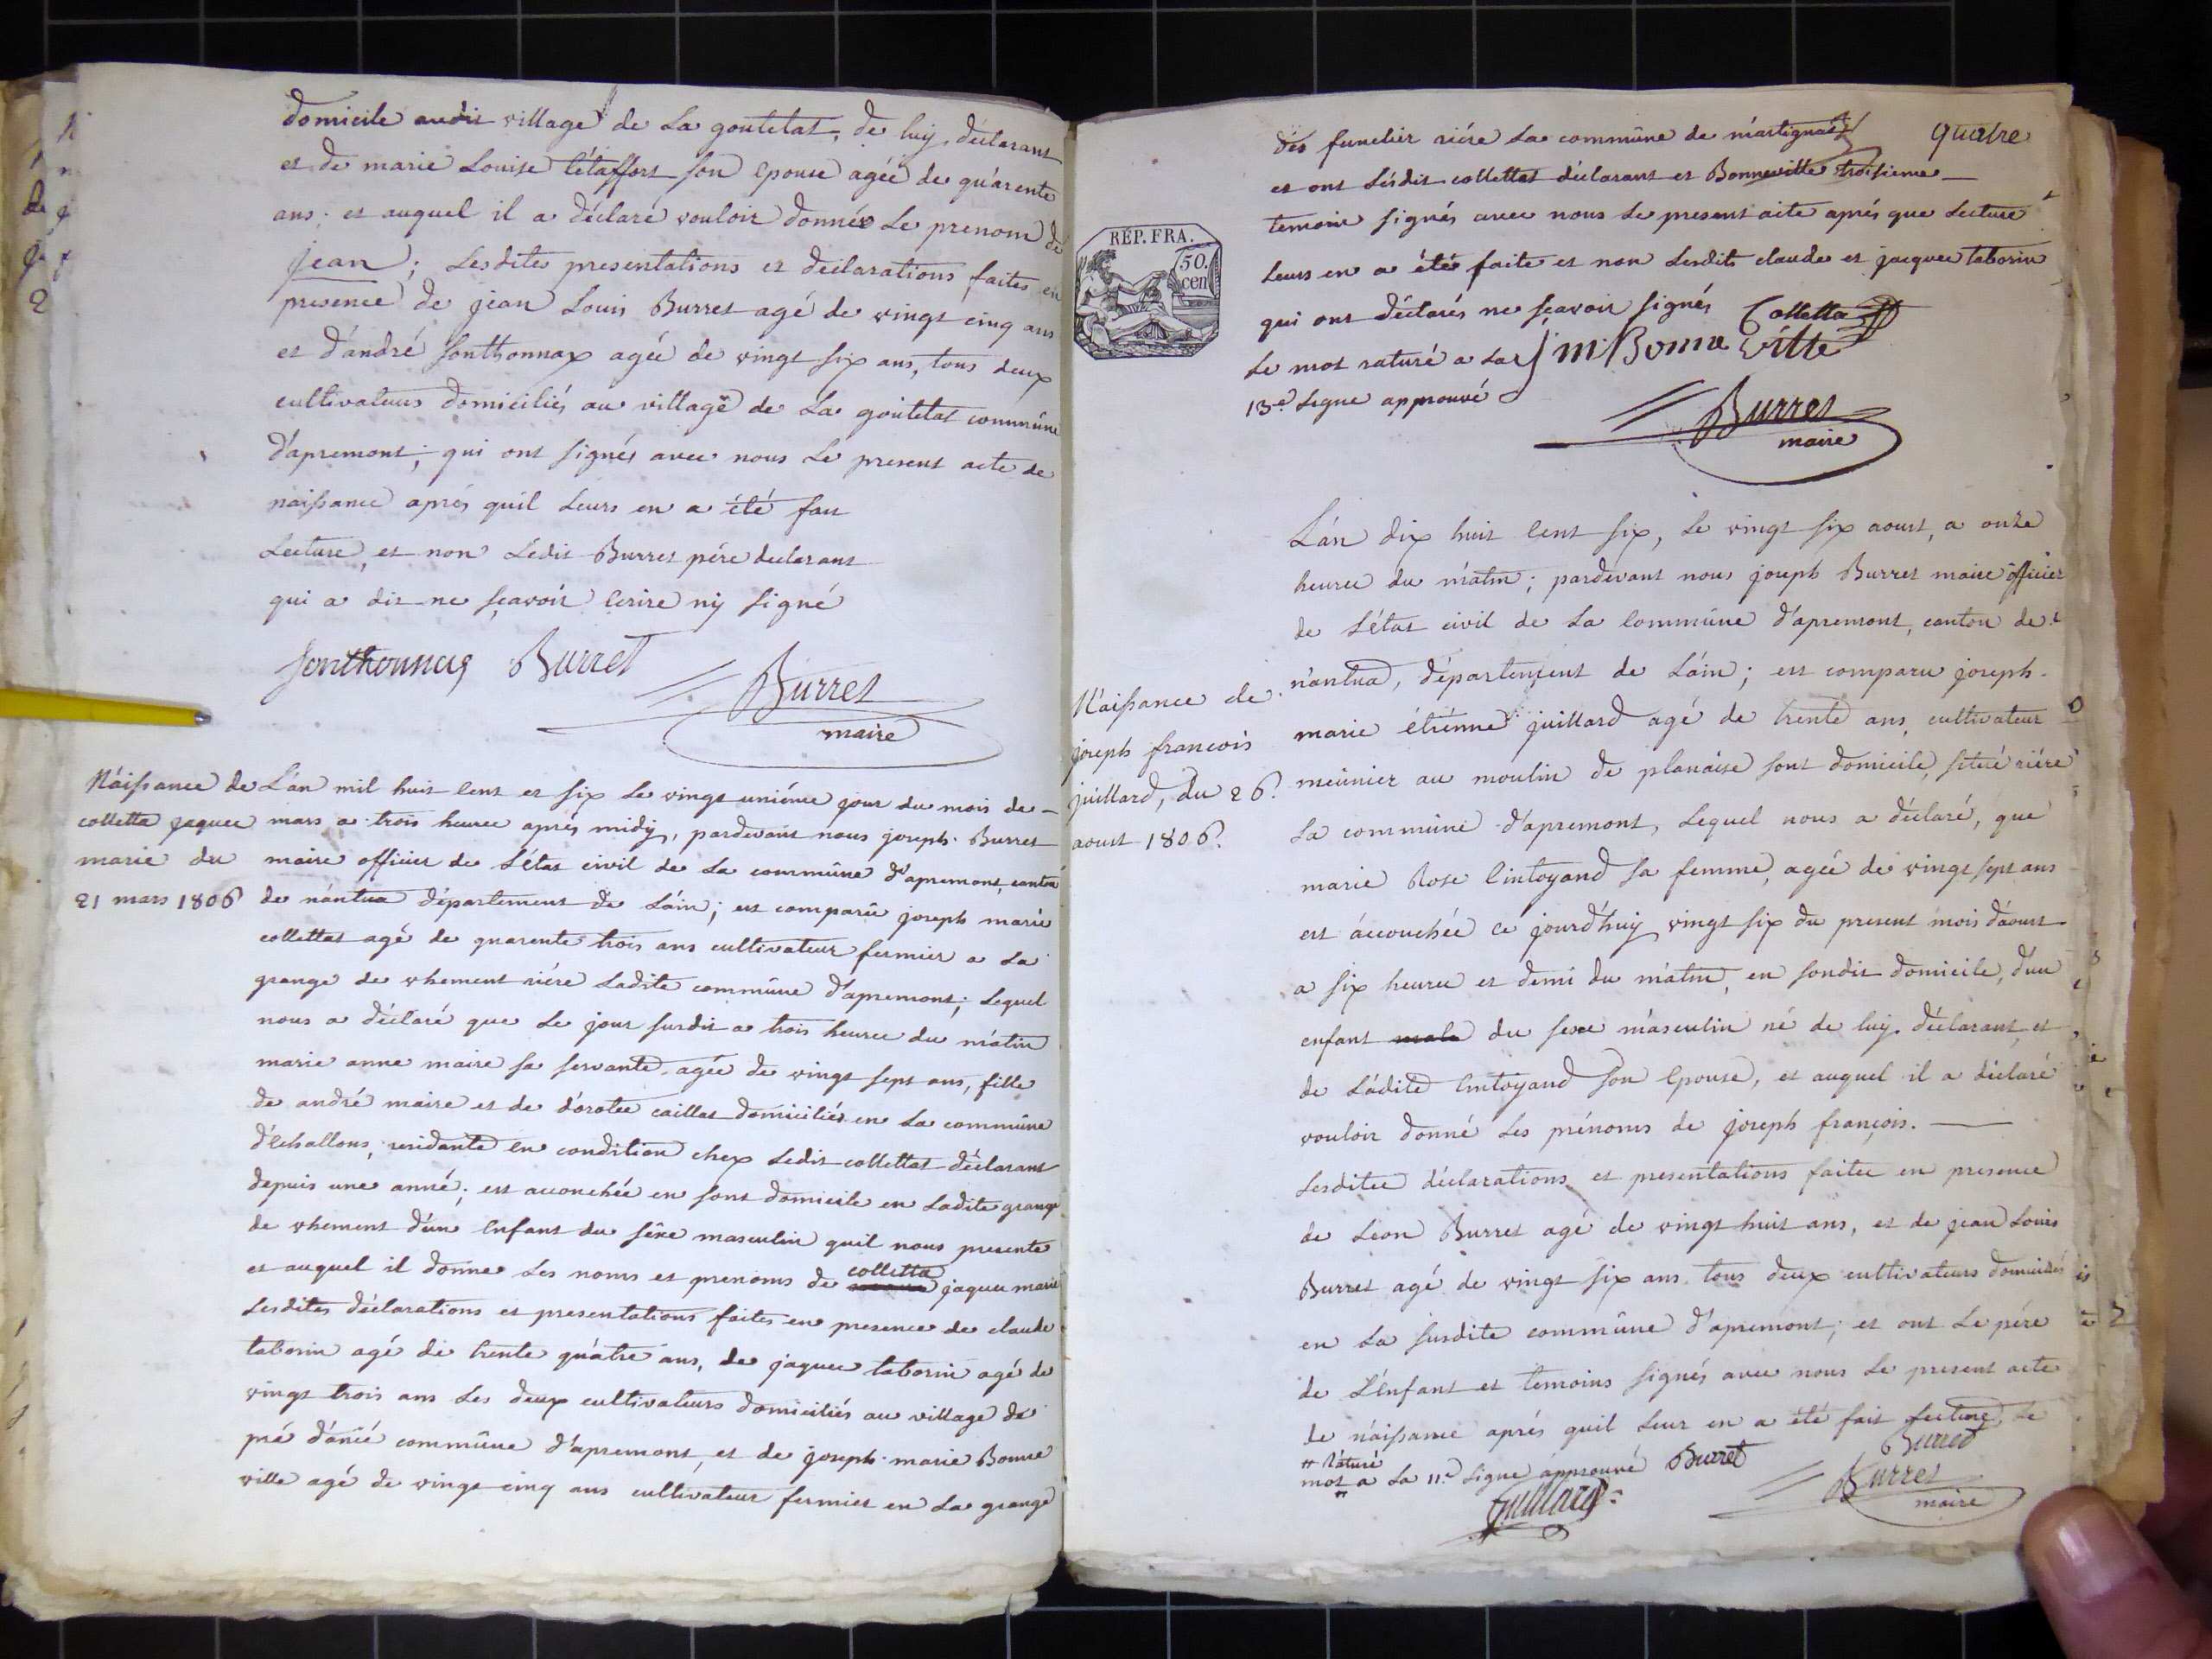 domicile audit village de La goutelat, de luy déclarant
et de marie Louise létaffort son epouse agée de quarente
ans; et auquel il a déclaré vouloir donnée Le prenom de
jean; Lesdites presentations et déclarations faites en
presence de jean Louis Burret agé de vingt cinq ans
et d'andré sonthonnax agée de vingt six ans, tous deux
cultivateurs domiciliés au village de La goutelat commûne
d'apremont, qui ont signés avec nous Le present acte de
naissance aprés quil Leurs en a été fait
Lecture, et non Lédit Burret pére declarant
qui a dit ne sçavoir écrire ny signé
Sonthonnax Burret
Burret
maire
Náissance de
colletta jaques
marie du
21 mars 1806
L'án mil huit cent et six Le vingt uniéme jour du mois de
mars a trois heures aprés midy, pardevant nous joseph Burret
maire officier de L'état civil de La commûne d'apremont, canton
de nántua département de L'áin; est comparû joseph marie
collettat agé de quarente trois ans cultivateur fermier a La
grange de vhement riére Ladite commûne d'apremont; Lequel
nous a déclaré que Le jour susdit a trois heures du mátin
marie anne maire sa servante, agée de vingt sept ans, fille
de andré maire et de dorotée caillat domiciliés en La commûne
d'échallons, residante en condition chex Ledit collettat déclarant
depuis une anné; est accouchée en sont domicile en Ladite grange
de vhement d'un enfant du séxe masculin quil nous presente
et auquel il donne Les noms et prenoms de colletta jaques marie
Lesdites déclarations et presentations faites en presence de claude
taborin agé de trente quátre ans, de jaques taborin agé de
vingt trois ans Les deux cultivateurs domiciliés au village de
pré d'anié commûne d'apremont, et de joseph marie Bonne
ville agé de vingt cinq ans cultivateur fermier en La grange
quatre
dés funelier riére La commûne de mártignat
et ont Lésdit collettat déclarant et Bonneville troisieme
temoin signés avec nous Le present acte aprés que Lecture
Leurs en a été faite et non Lesdits claude et jacques taborin
qui ont déclarés ne sçavoir signés Colletta
Le mot raturé a La j m Bonne ville
13e Ligne approuvé
RÉP. FRA.
50.
cen
Burret
maire
Náissance de
joseph francois
juillard, du 26.
aoust 1806.
L'án dix huit cent six, Le vingt six aoust, a onze
heures du mátin; pardevant nous joseph Burret maire officier
de L'état civil de La commûne d'apremont, canton de
nántua, département de L'áin; est comparu joseph
marie étiénne juillard agé de trente ans, cultivateur
meúnier au moulin de planaise sont domicile, situé riére
La commûne d'apremont, Lequel nous a déclaré, que
marie Rose lintoyand sa femme, agée de vingt sept ans
est áccouchée ce jourd'huy vingt six du present mois d'áoust
a six heures et demi du mátin, en sondit domicile, d'un
enfant male du sexe másculin né de luy déclarant, et
de Ládite lintoyand son epouse, et auquel il a déclaré
vouloir donné Les prénoms de joseph françois.
Lesdites déclarations et presentations faites en presence
de Léon Burret agé de vingt huit ans, et de jean Louis
Burret agé de vingt six ans tous deux cultivateurs domiciliés
en La susdite commûne d'apremont; et ont Le pére
de L'énfant et temoins signés avec nous Le present acte
de náissance aprés quil Leur en a été fait Lecture, Le
raturé
mot a La 11e Ligne approuvé Burret
Burret
Juillard
Burret
maire